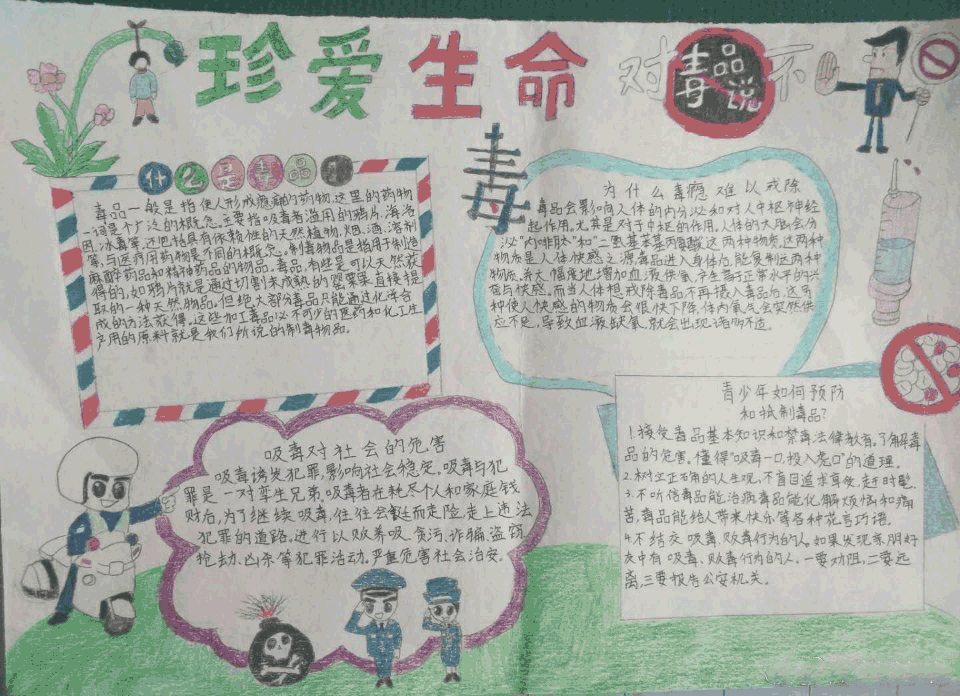 珍爱生命
对毒品说不
什么是毒品
毒品一般是指使人形成瘾癖的药物,这里的药物
一词是个广泛的概念。主要指吸毒者滥用的鸦片、海洛
因、冰毒等,还包括具有依赖性的天然植物、烟、酒、溶剂
等,与医疗用药物是不同的概念。制毒物品是指用于制造
麻醉药品和精神药品的物品。毒品,有些是可以天然获
得的,如鸦片就是通过切割未成熟的罂粟果直接提
取的一种天然物品。但绝大部分毒品只能通过化学合
成的方法获得。这些加工毒品必不可少的医药和化工生
产用的原料就是我们所说的制毒物品。
毒
为什么毒瘾难以戒除
毒品会影响人体的内分泌和对人中枢神经
起作用。尤其是对于中枢的作用。人体的大脑会分
泌“内啡肽”和“二氢基苯基丙氨酸”这两种物质。这两种
物质是人体快感之源毒品进入身体后,能复制这两种
物质,并大幅度地增加血液供氧,产生高于正常水平的兴
奋与快感。而当人体想戒除毒品不再摄入毒品后,这两
种使人快感的物质会很快下降,体内氧气会突然供
应不足,导致血液缺氧,就会出现诸多不适。
吸毒对社会的危害
吸毒诱发犯罪,影响社会稳定。吸毒与犯
罪是一对孪生兄弟。吸毒者在耗尽个人和家庭钱
财后,为了继续吸毒,往往会铤而走险,走上违法
犯罪的道路,进行以贩养吸、贪污、诈骗、盗窃、
抢劫、凶杀等犯罪活动,严重危害社会治安。
青少年如何预防
和抵制毒品?
1.接受毒品基本知识和禁毒法律教育,了解毒
品的危害,懂得“吸毒一口,投入虎口”的道理。
2.树立正确的人生观,不盲目追求享受,赶时髦。
3.不听信毒品能治病毒品能化解烦恼和痛
苦,毒品能给人带来快乐等各种花言巧语。
4.不结交吸毒、贩毒行为的人。如果发现亲朋好
友中有吸毒、贩毒行为的人,一要劝阻,二要远
离,三要报告公安机关。